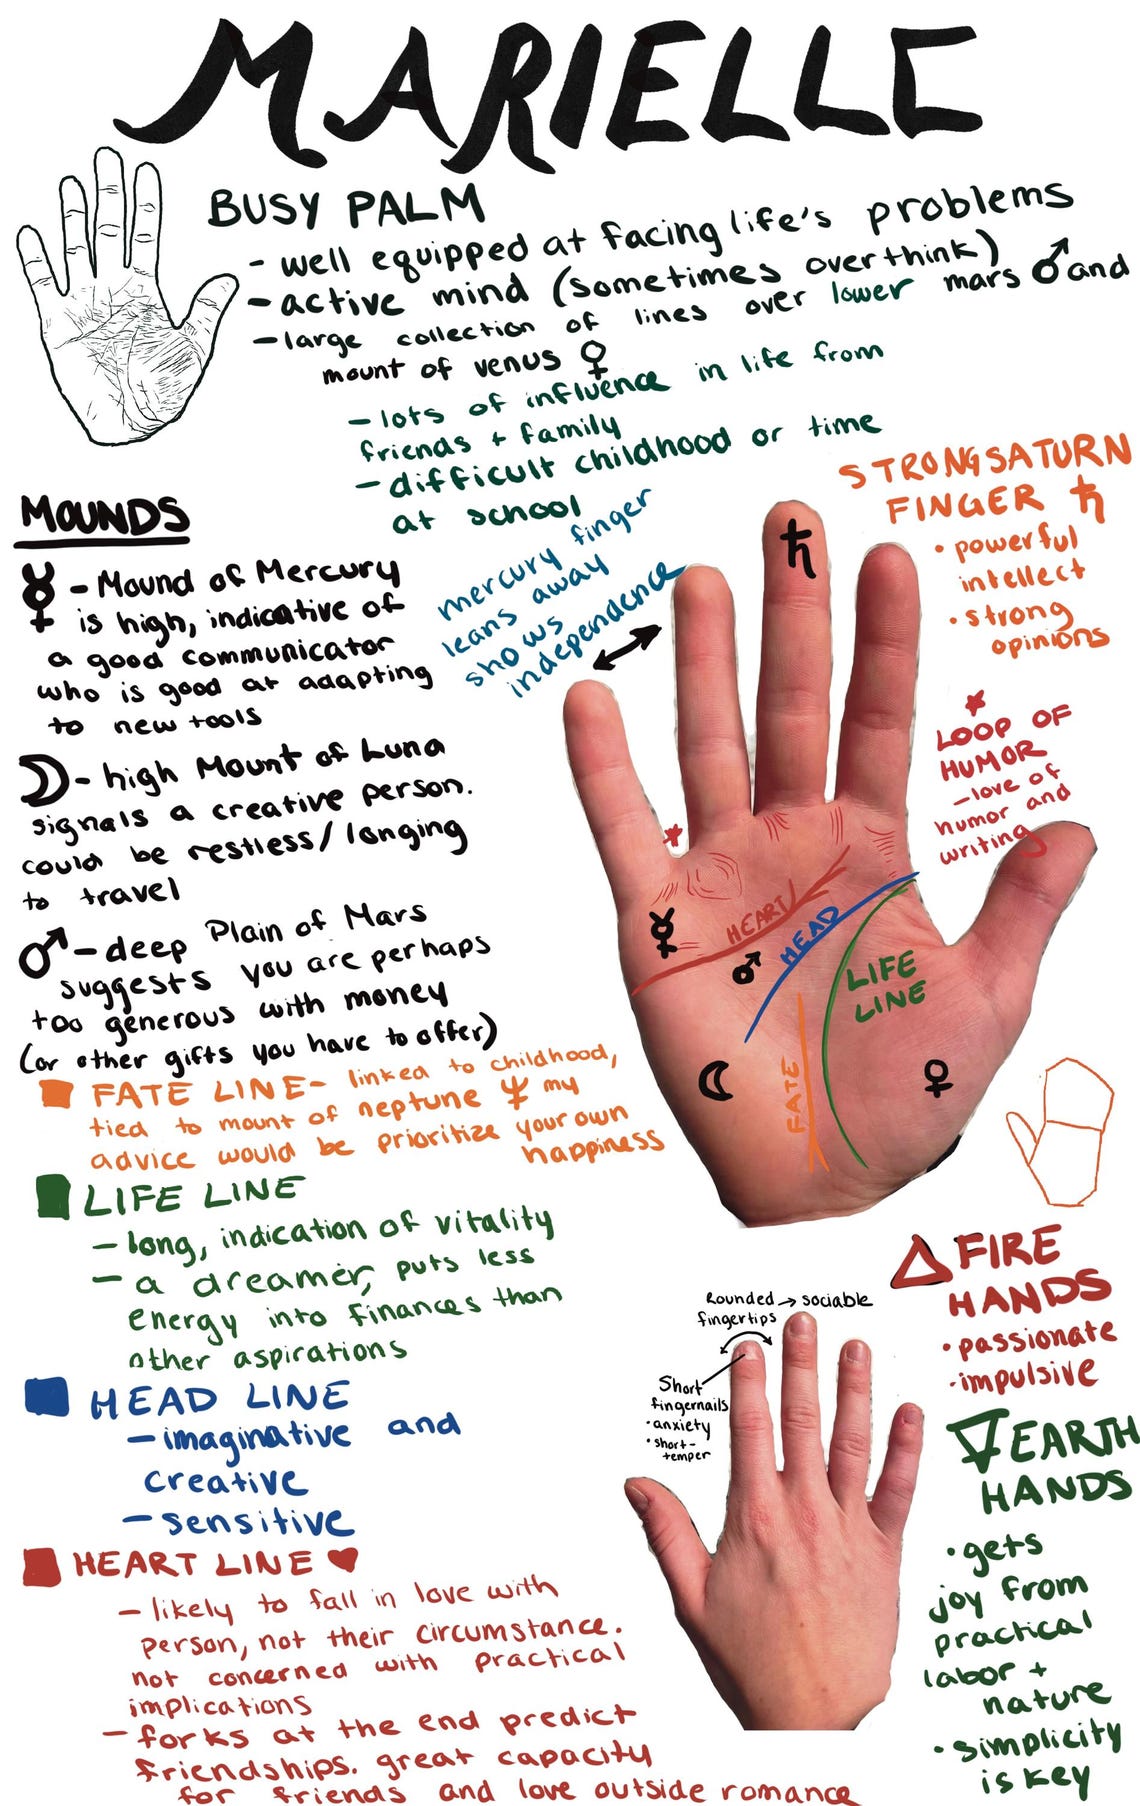 MARIELLE
BUSY PALM
- well equipped at facing life's problems
- active mind (sometimes overthink)
- large collection of lines over lower mars ♂ and
mount of venus ♀
- lots of influence in life from
friends + family
- difficult childhood or time
at school
MOUNDS
☿ - Mound of Mercury
is high, indicative of
a good communicator
who is good at adapting
to new tools
☽ - high Mount of Luna
signals a creative person.
could be restless/longing
to travel
♂ - deep Plain of Mars
suggests you are perhaps
too generous with money
(or other gifts you have to offer)
mercury finger
leans away
shows
independence
STRONG SATURN
FINGER ♄
• powerful
intellect
• strong
opinions
♄
LOOP OF
HUMOR
- love of
humor and
writing
☿
HEART
♂
HEAD
LIFE
LINE
☽
FATE
♀
FATE LINE - linked to childhood,
tied to mount of neptune ♆ my
advice would be prioritize your own
happiness
LIFE LINE
- long, indication of vitality
- a dreamer, puts less
energy into finances than
other aspirations
HEAD LINE
- imaginative and
creative
- sensitive
HEART LINE ♥
- likely to fall in love with
person, not their circumstance.
not concerned with practical
implications
- forks at the end predict
friendships. great capacity
for friends and love outside romance
Rounded → sociable
fingertips
Short
fingernails
• anxiety
• short-
temper
FIRE
HANDS
• passionate
• impulsive
EARTH
HANDS
• gets
joy from
practical
labor +
nature
• simplicity
is key